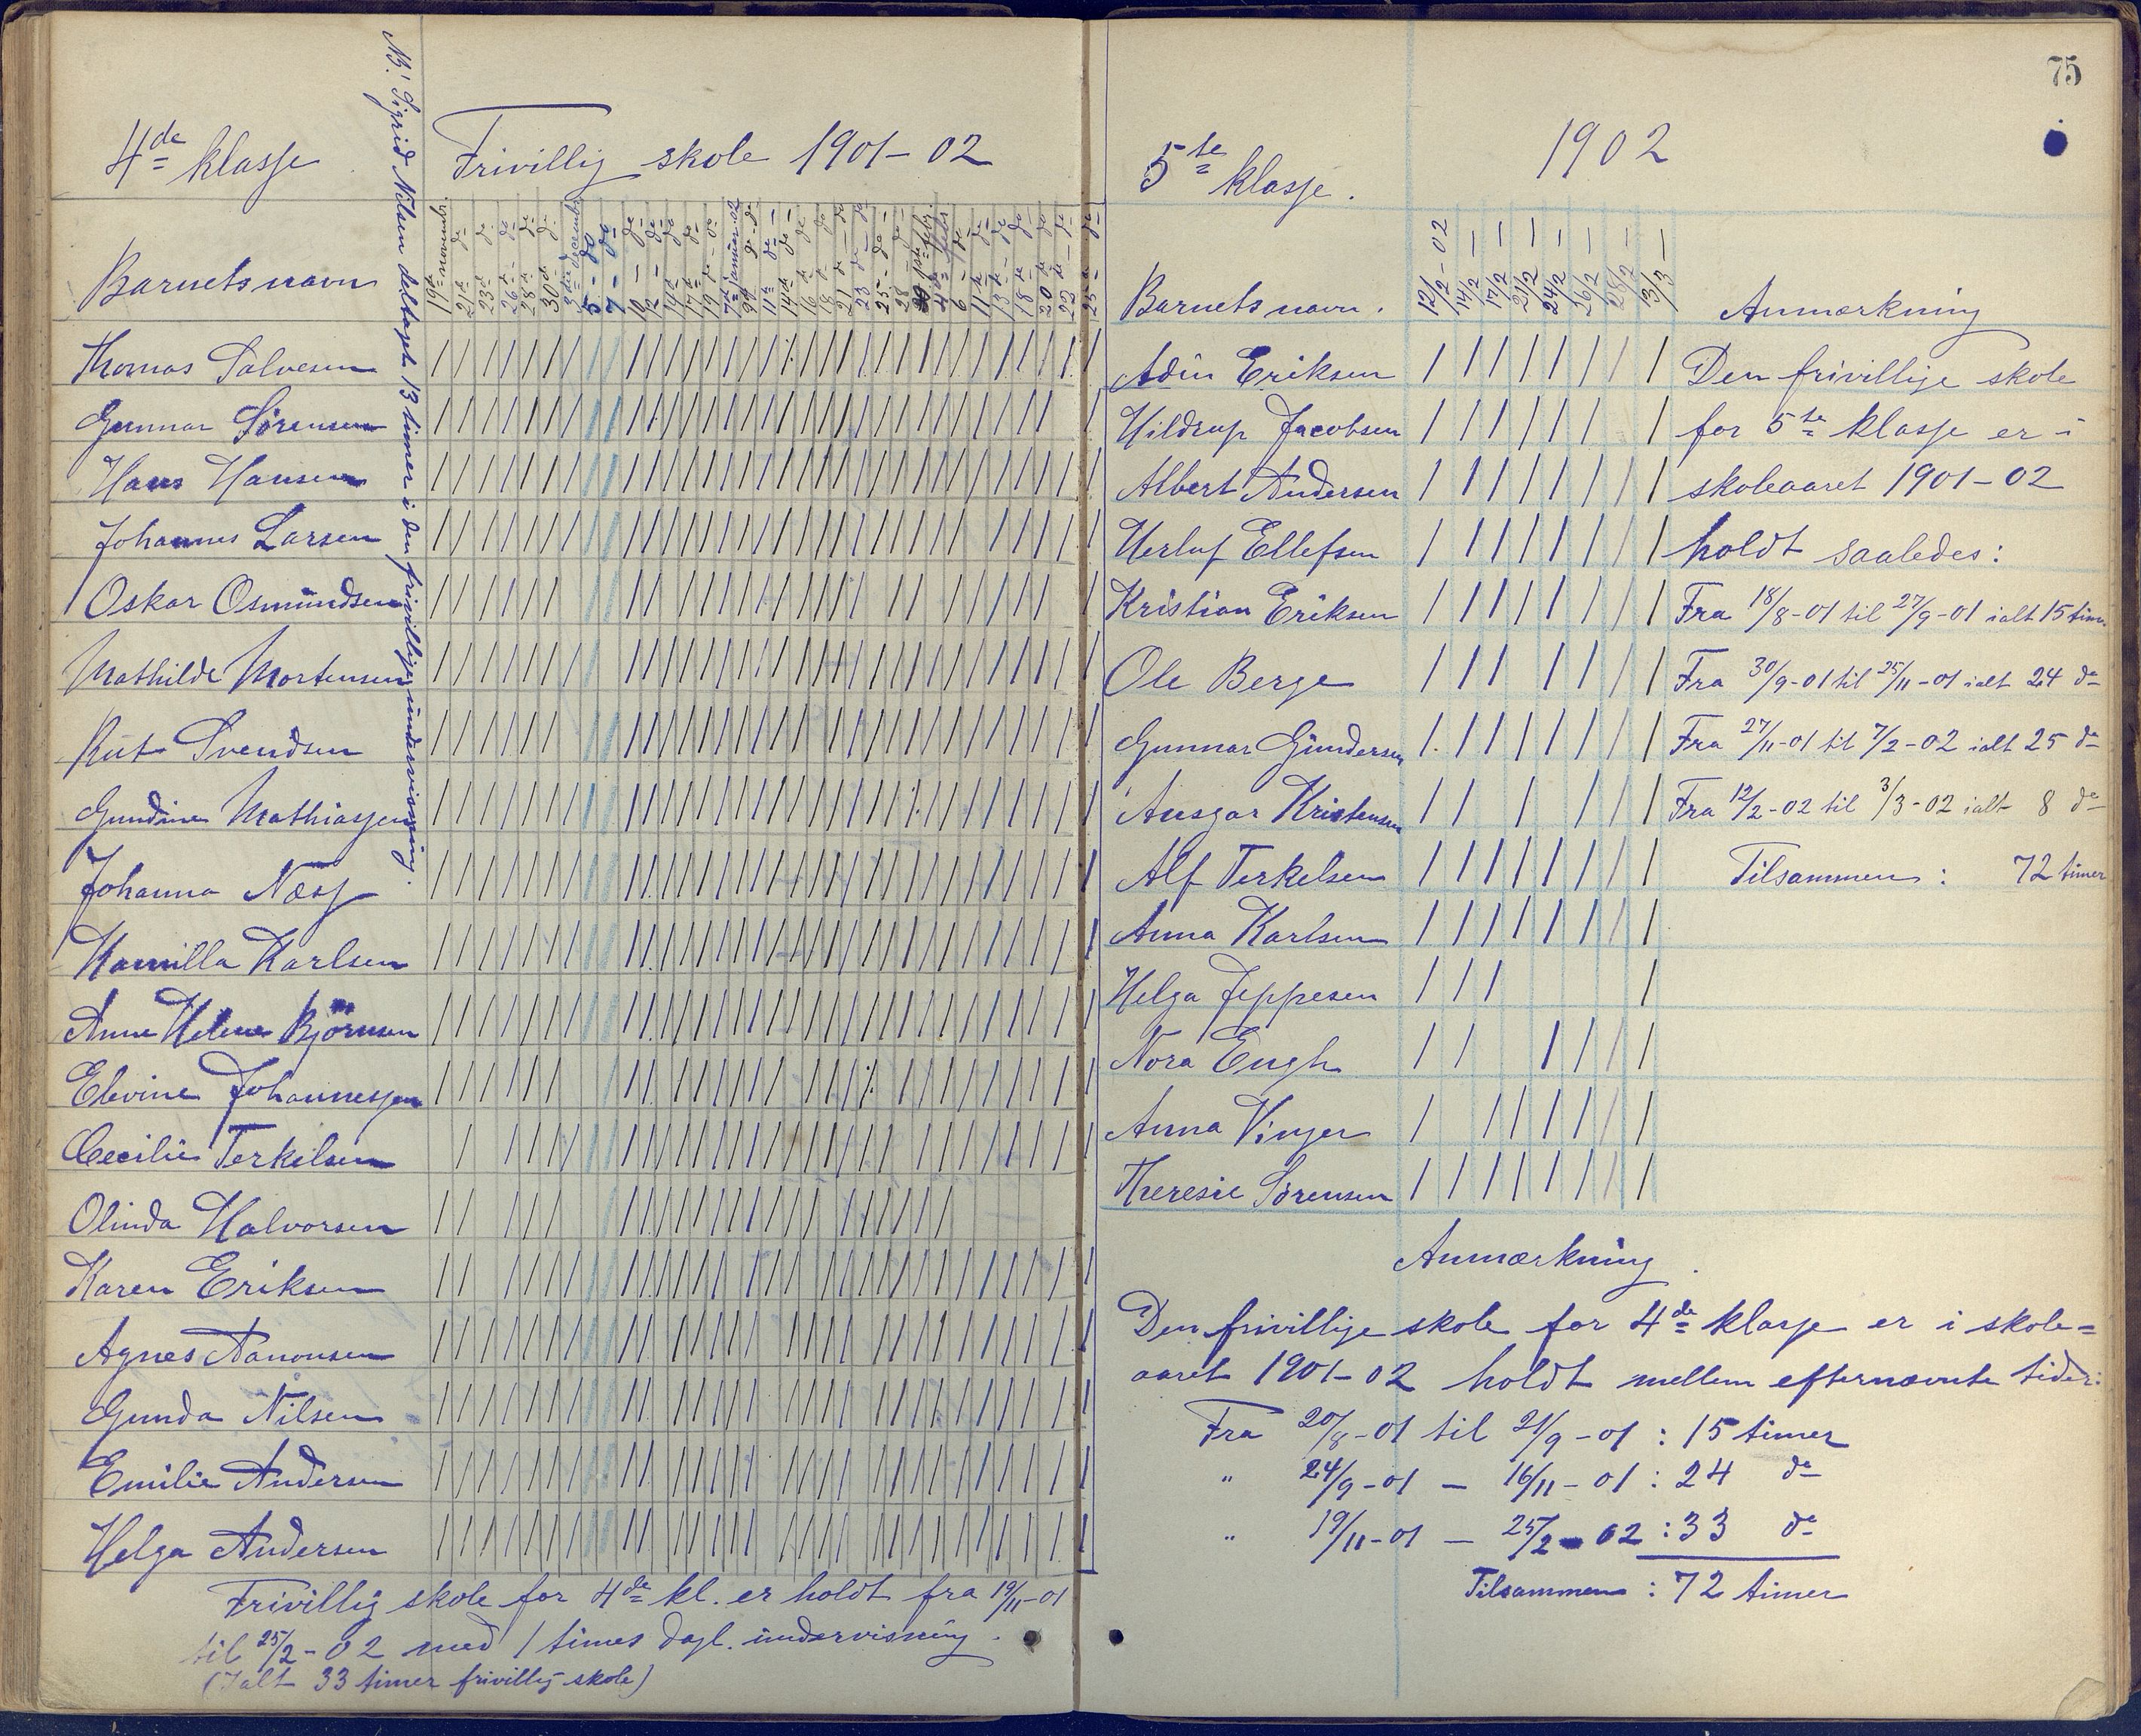 4de klasse
Frivillig skole 1901-02
NB! Sigrid Nilsen deltaget 13 timer i den frivillige undervisning.
Barnets navn
19de novembr.
21de do
23de do
26de do
28de do
30te do
3die decembr.
5 - do
7 - do
10 - do
12 - do
14de do
17de do
19de - do
7de januar 02
9de do
11te do
14de do
16de do
18de do
21de - do
23de - do
25 - do
28 - do
1ste febr.
4de febr.
6 - do
11te do
13de - do
18de do
20de do
22de - do
25de do
Thomas Salvesen
Gunnar Sørensen
Hans Hansen
Johannes Larsen
Oskar Osmundsen
Mathilde Mortensen
Rut Svendsen
Gundine Mathiassen
Johanna Næss
Kamilla Karlsen
Anne Helene Bjørnsen
Elevine Johannessen
Cecilie Terkelsen
Olinda Halvorsen
Karen Eriksen
Agnes Aanonsen
Gunda Nilsen
Emilie Andersen
Helga Andersen
Frivillig skole for 4de kl. er holdt fra 19/11-01
til 25/2-02 med 1 times dagl. undervisning.
(Ialt 33 timer frivillig skole)
75
5te klasse.
1902
Barnets navn.
12/2-02
14/2 -
17/2 -
21/2 -
24/2 -
26/2 -
28/2 -
3/3 -
Anmærkning
Adin Eriksen
Den frivillige skole
Hildrup Jacobsen
for 5te klasse er i
Albert Andersen
skoleaaret 1901-02
Herluf Ellefsen
holdt saaledes:
Kristian Eriksen
Fra 18/8-01 til 27/9-01 ialt 15 tim.
Ole Berge
Fra 30/9-01 til 25/11-01 ialt 24 do
Gunnar Gundersen
Fra 27/11-01 til 7/2-02 ialt 25 do
Ansgar Kristensen
Fra 12/2-02 til 3/3-02 ialt 8 do
Alf Terkelsen
Tilsammen: 72 timer
Anna Karlsen
Helga Jeppesen
Nora Engh
Anna Vinjer
Theresie Sørensen
Anmærkning.
Den frivillige skole for 4de klasse er i skole=
aaret 1901-02 holdt mellem efternævnte tider:
Fra 20/8-01 til 21/9-01 : 15 timer
" 24/9-01 - 16/11-01 : 24 do
" 19/11-01 - 25/2-02 : 33 do
Tilsammen : 72 timer